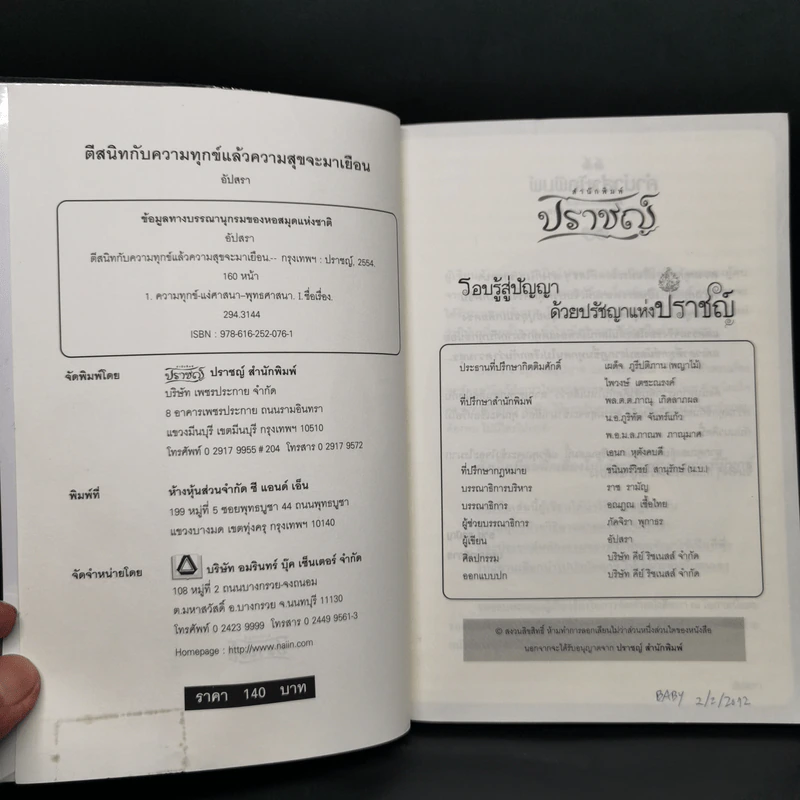 ตีสนิทกับความทุกข์แล้วความสุขจะมาเยือน
อัปสรา
ข้อมูลทางบรรณานุกรมของหอสมุดแห่งชาติ
อัปสรา
ตีสนิทกับความทุกข์แล้วความสุขจะมาเยือน.-- กรุงเทพฯ : ปราชญ์, 2554.
160 หน้า
1. ความทุกข์-แง่ศาสนา-พุทธศาสนา. I.ชื่อเรื่อง.
294.3144
ISBN : 978-616-252-076-1
จัดพิมพ์โดย ปราชญ์ ปราชญ์ สำนักพิมพ์
บริษัท เพชรประกาย จำกัด
8 อาคารเพชรประกาย ถนนรามอินทรา
แขวงมีนบุรี เขตมีนบุรี กรุงเทพฯ 10510
โทรศัพท์ 0 2917 9955 # 204 โทรสาร 0 2917 9572
พิมพ์ที่ ห้างหุ้นส่วนจำกัด ซี แอนด์ เอ็น
199 หมู่ที่ 5 ซอยพุทธบูชา 44 ถนนพุทธบูชา
แขวงบางมด เขตทุ่งครุ กรุงเทพฯ 10140
จัดจำหน่ายโดย บริษัท อมรินทร์ บุ๊ค เซ็นเตอร์ จำกัด
108 หมู่ที่ 2 ถนนบางกรวย-จงถนอม
ต.มหาสวัสดิ์ อ.บางกรวย จ.นนทบุรี 11130
โทรศัพท์ 0 2423 9999 โทรสาร 0 2449 9561-3
Homepage : http://www.naiin.com
ราคา 140 บาท
สำนักพิมพ์
ปราชญ์
รอบรู้สู่ปัญญา
ด้วยปรัชญาแห่งปราชญ์
ประธานที่ปรึกษากิตติมศักดิ์ เผด็จ ภูรีปติภาน (พญาไม้)
ไพวงษ์ เตชะณรงค์
ที่ปรึกษาสำนักพิมพ์ พล.ต.ต.ภาณุ เกิดลาภผล
น.อ.ภูริทัต จันทร์แก้ว
พ.อ.ม.ล.ภาณพ ภาณุมาศ
เอนก หุตังคบดี
ที่ปรึกษากฎหมาย ชนินทร์วิชย์ สานุรักษ์ (น.บ.)
บรรณาธิการบริหาร ราช รามัญ
บรรณาธิการ อณฎณ เชื้อไทย
ผู้ช่วยบรรณาธิการ ภัคจิรา พุกาธร
ผู้เขียน อัปสรา
ศิลปกรรม บริษัท คีย์ ริชเนสส์ จำกัด
ออกแบบปก บริษัท คีย์ ริชเนสส์ จำกัด
© สงวนลิขสิทธิ์ ห้ามทำการลอกเลียนไม่ว่าส่วนหนึ่งส่วนใดของหนังสือ
นอกจากจะได้รับอนุญาตจาก ปราชญ์ สำนักพิมพ์
BABY 2/2/2012